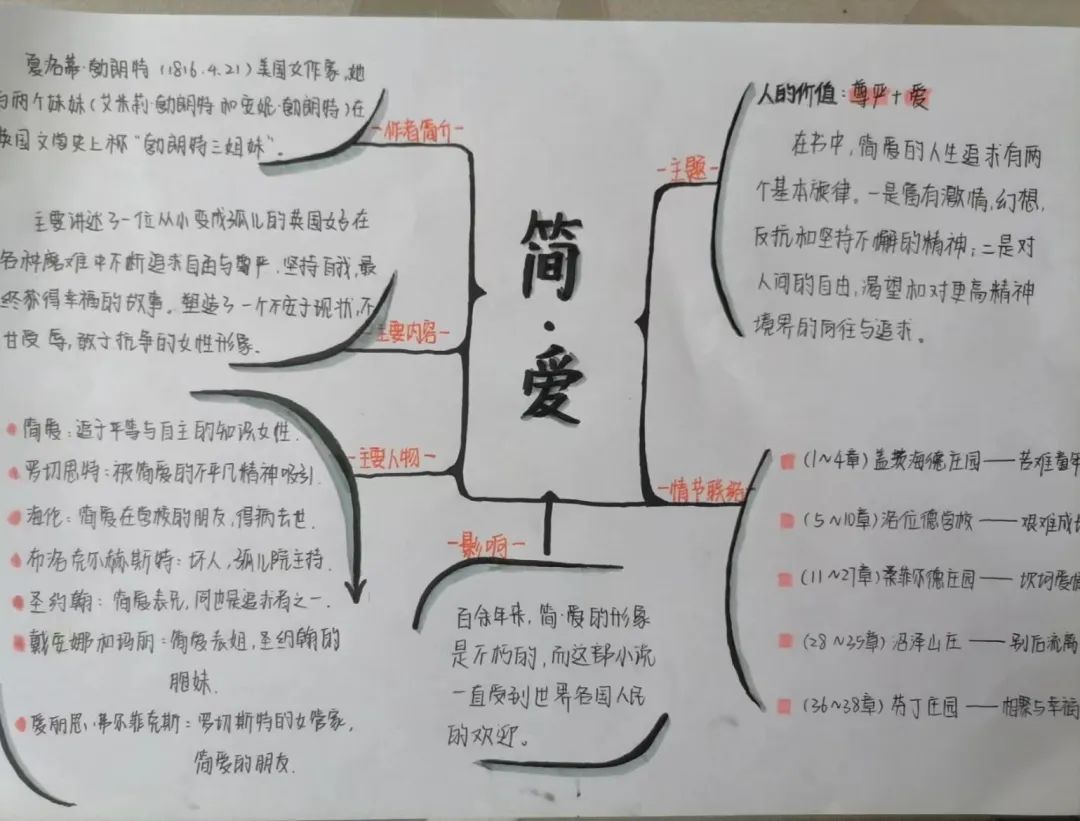 简·爱
-作者简介-
夏洛蒂·勃朗特（1816.4.21）美国女作家，她
与两个妹妹（艾米莉·勃朗特和安妮·勃朗特）在
英国文学史上称“勃朗特三姐妹”。
-主要内容-
主要讲述了一位从小变成孤儿的英国女子在
各种磨难中不断追求自由与尊严，坚持自我，最
终获得幸福的故事。塑造了一个不安于现状，不
甘受辱，敢于抗争的女性形象.
-主要人物-
简爱：追于平等与自主的知识女性.
罗切思特：被简爱的不平凡精神吸引.
海伦：简爱在学校的朋友，得病去世.
布洛克尔赫斯特：坏人，孤儿院主持.
圣约翰：简爱表兄，同也是追求者之一.
戴安娜和玛丽：简爱表姐，圣约翰的
胞妹.
爱丽思·弗尔菲克斯：罗切斯特的女管家，
简爱的朋友.
-影响-
百余年来，简·爱的形象
是不朽的，而这部小说
一直受到世界各国人民
的欢迎。
-主题-
人的价值：尊严+爱
在书中，简爱的人生追求有两
个基本旋律。一是富有激情，幻想，
反抗和坚持不懈的精神；二是对
人间的自由，渴望和对更高精神
境界的向往与追求。
-情节联
(1~4章) 盖茨海德庄园——苦难童年
(5~10章) 洛位德学校——艰难成长
(11~27章) 桑菲尔德庄园——坎坷爱情
(28~35章) 沼泽山庄——别后流离
(36~38章) 芬丁庄园——相聚与幸福